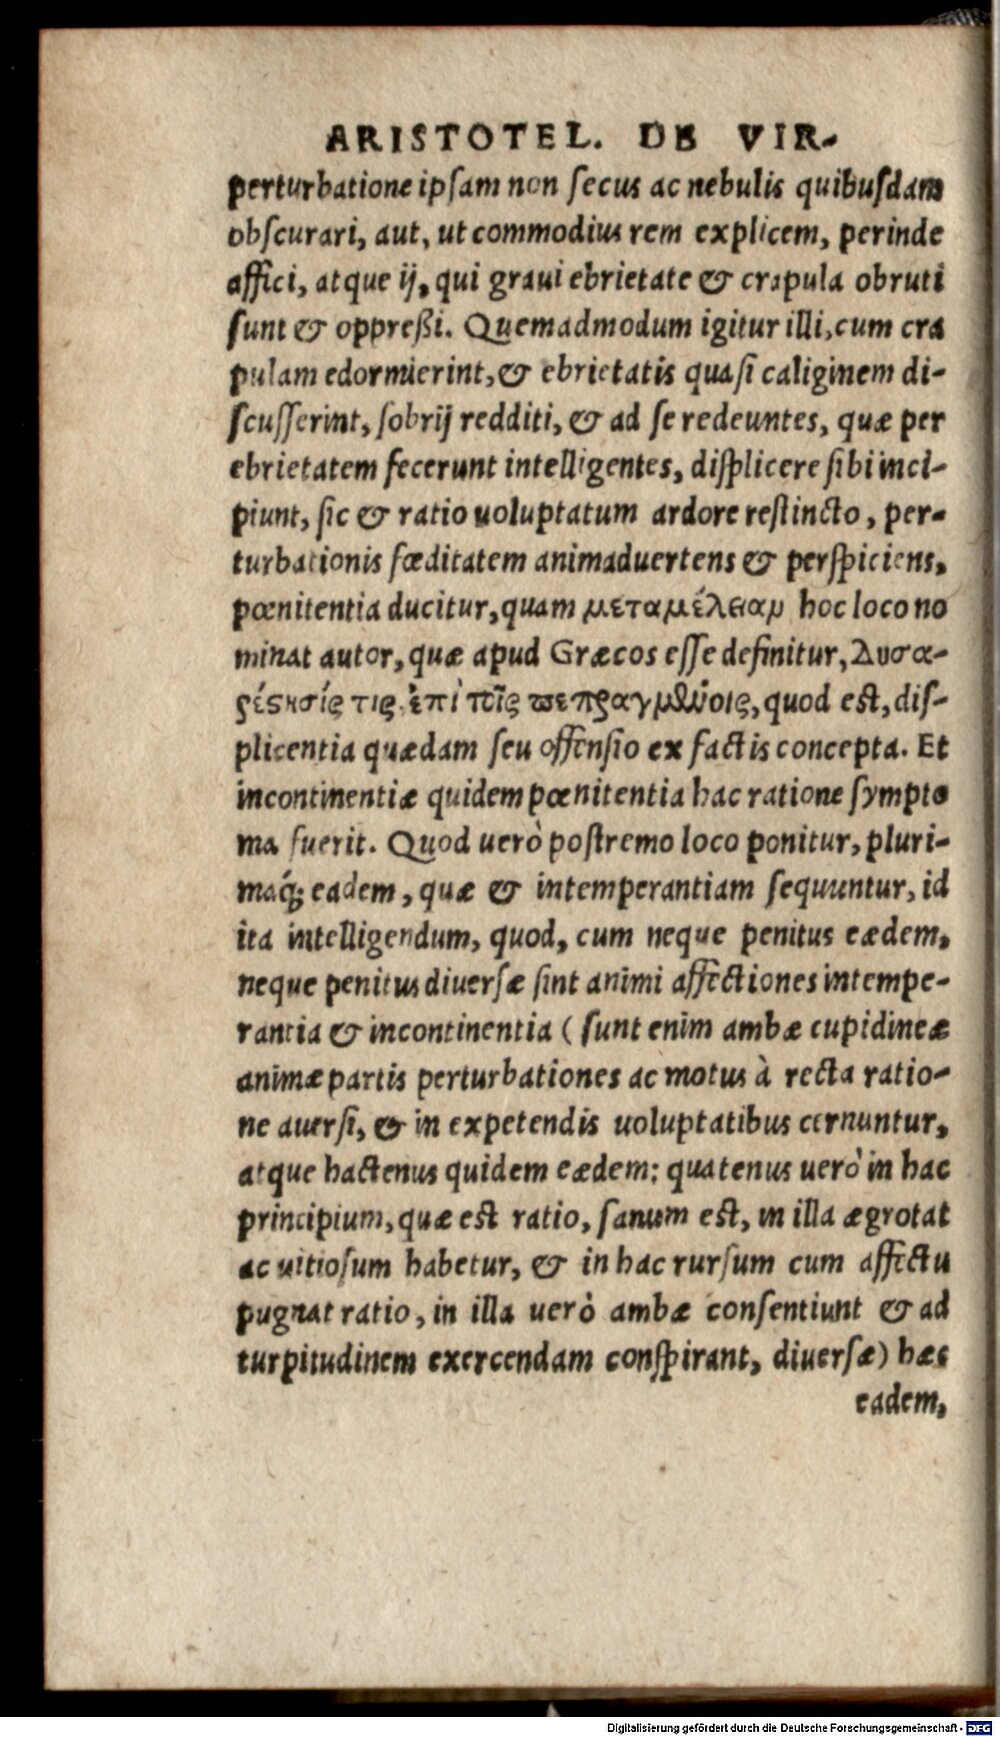 ARISTOTEL. DE VIR-
perturbatione ipsam non secus ac nebulis quibusdam
obscurari, aut, ut commodius rem explicem, perinde
affici, atque ij, qui graui ebrietate & crapula obruti
sunt & oppreßi. Quemadmodum igitur illi, cum cra
pulam edormierint, & ebrietatis quasi caliginem di-
scusserint, sobrij redditi, & ad se redeuntes, quæ per
ebrietatem fecerunt intelligentes, displicere sibi inci-
piunt, sic & ratio uoluptatum ardore restincto, per-
turbationis fœditatem animaduertens & perspiciens,
pœnitentia ducitur, quam μεταμέλειαν hoc loco no
minat autor, quæ apud Græcos esse definitur, Δυσα-
ρέστησίς τις ἐπὶ τοῖς πεπραγμένοις, quod est, dis-
plicentia quædam seu offensio ex factis concepta. Et
incontinentiæ quidem pœnitentia hac ratione sympto
ma fuerit. Quod uerò postremo loco ponitur, pluri-
maq́; eadem, quæ & intemperantiam sequuntur, id
ita intelligendum, quod, cum neque penitus eædem,
neque penitus diuersæ sint animi affectiones intempe-
rantia & incontinentia ( sunt enim ambæ cupidineæ
animæ partis perturbationes ac motus à recta ratio-
ne auersi, & in expetendis uoluptatibus cernuntur,
atque hactenus quidem eædem: quatenus uerò in hac
principium, quæ est ratio, sanum est, in illa ægrotat
ac uitiosum habetur, & in hac rursum cum affectu
pugnat ratio, in illa uerò ambæ consentiunt & ad
turpitudinem exercendam conspirant, diuersæ) hæc
eadem,
Digitalisierung gefördert durch die Deutsche Forschungsgemeinschaft - DFG